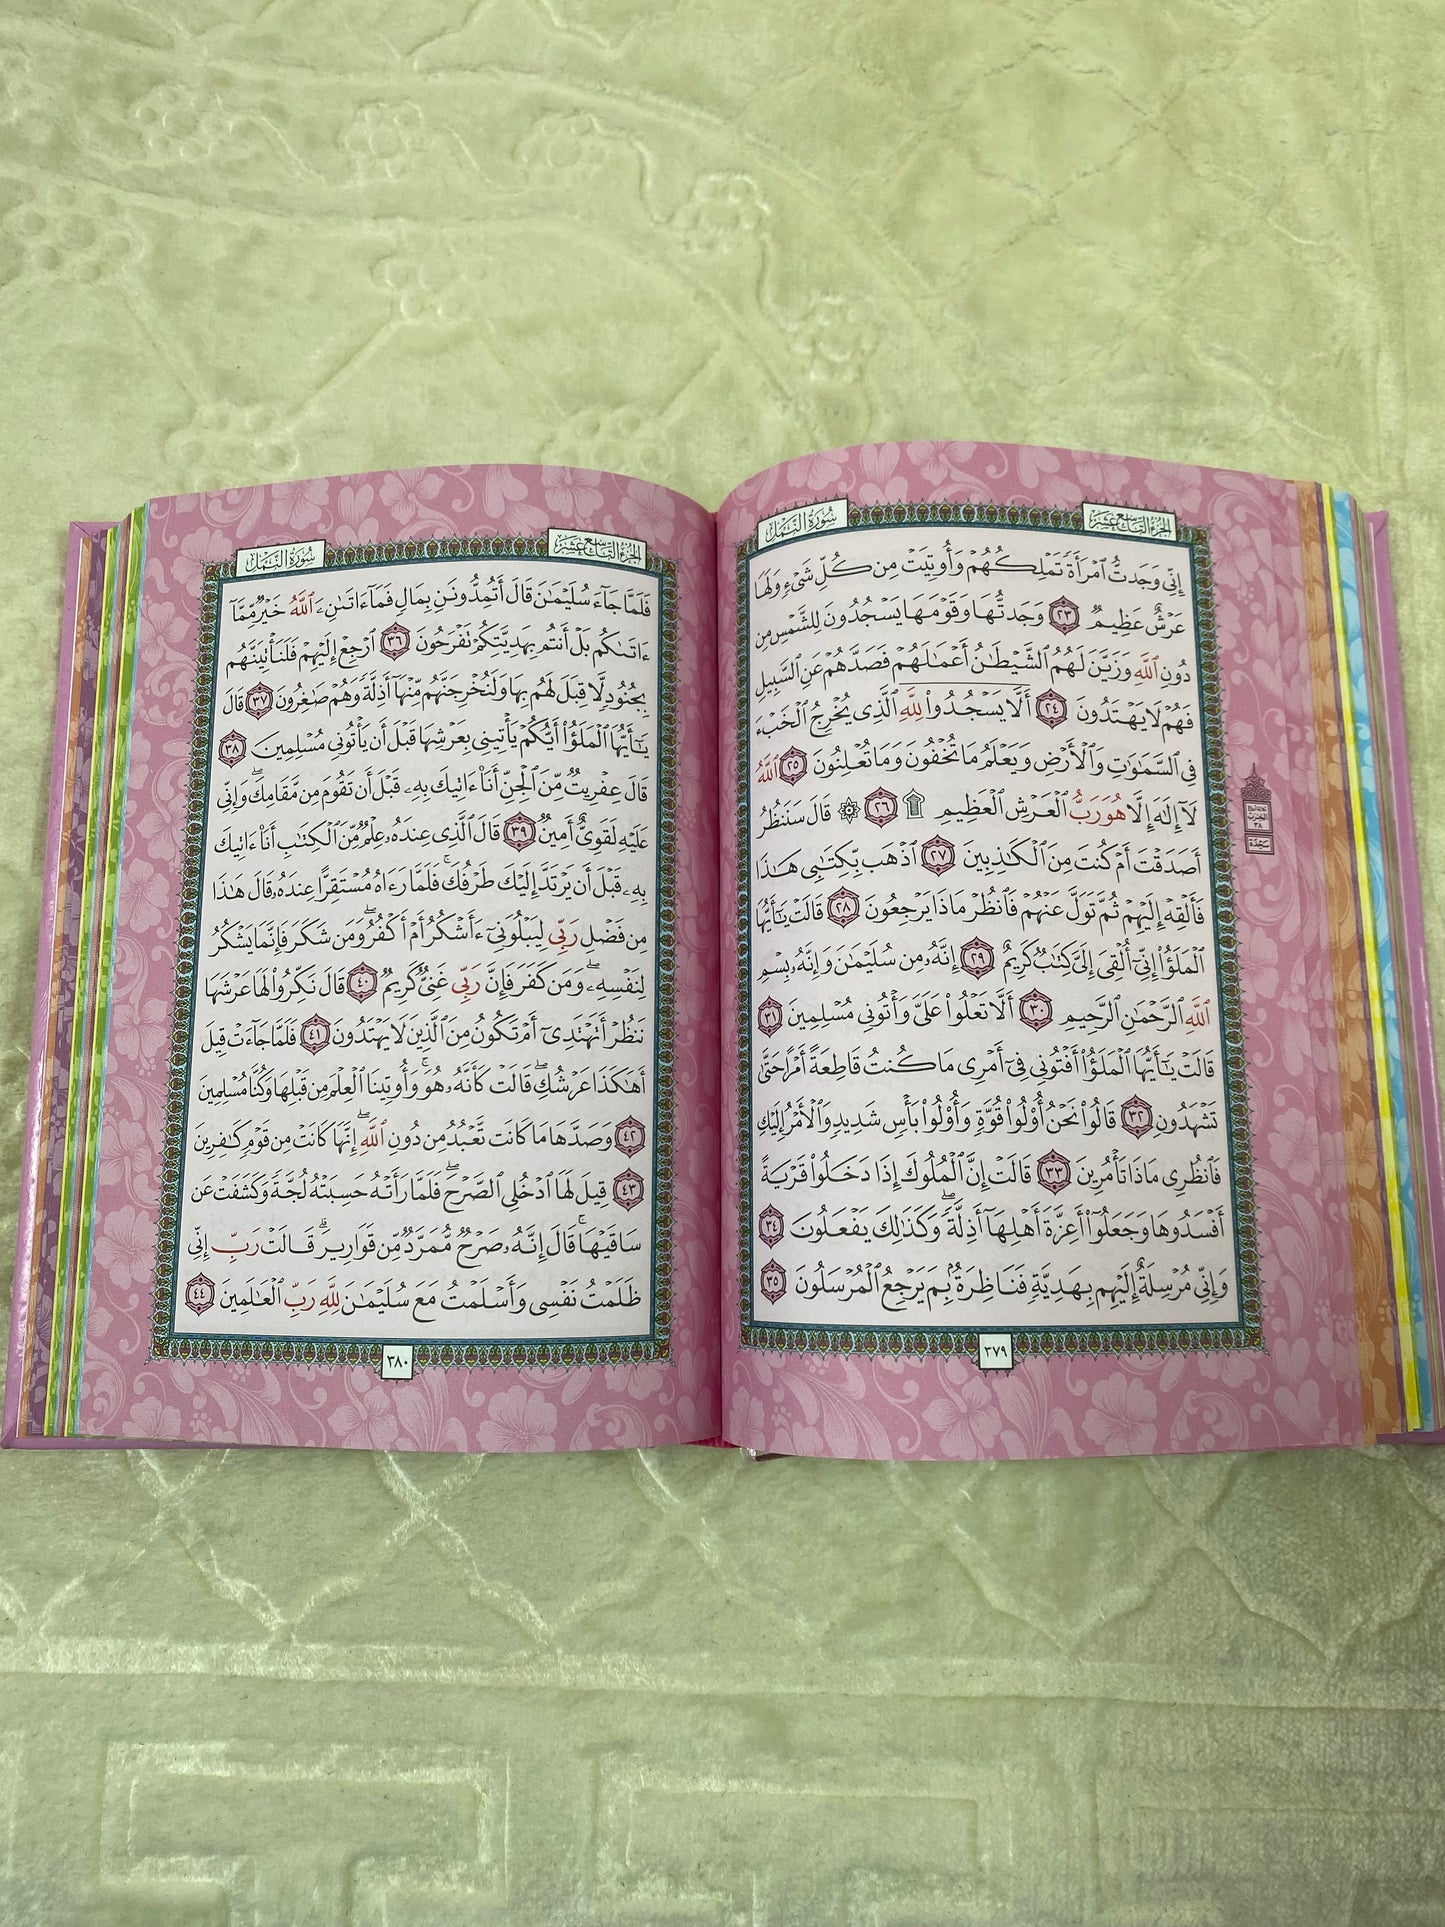 الجزء التاسع عشر
سورة النمل
إِنِّى وَجَدتُّ ٱمْرَأَةً تَمْلِكُهُمْ وَأُوتِيَتْ مِن كُلِّ شَىْءٍ وَلَهَا
عَرْشٌ عَظِيمٌ ٢٣ وَجَدتُّهَا وَقَوْمَهَا يَسْجُدُونَ لِلشَّمْسِ مِن
دُونِ ٱللَّهِ وَزَيَّنَ لَهُمُ ٱلشَّيْطَٰنُ أَعْمَٰلَهُمْ فَصَدَّهُمْ عَنِ ٱلسَّبِيلِ
فَهُمْ لَا يَهْتَدُونَ ٢٤ أَلَّا يَسْجُدُوا۟ لِلَّهِ ٱلَّذِى يُخْرِجُ ٱلْخَبْءَ
فِى ٱلسَّمَٰوَٰتِ وَٱلْأَرْضِ وَيَعْلَمُ مَا تُخْفُونَ وَمَا تُعْلِنُونَ ٢٥ ٱللَّهُ
لَآ إِلَٰهَ إِلَّا هُوَ رَبُّ ٱلْعَرْشِ ٱلْعَظِيمِ ۩ ٢٦ ۞ قَالَ سَنَنظُرُ
أَصَدَقْتَ أَمْ كُنتَ مِنَ ٱلْكَٰذِبِينَ ٢٧ ٱذْهَب بِّكِتَٰبِى هَٰذَا
فَأَلْقِهْ إِلَيْهِمْ ثُمَّ تَوَلَّ عَنْهُمْ فَٱنظُرْ مَاذَا يَرْجِعُونَ ٢٨ قَالَتْ يَٰٓأَيُّهَا
ٱلْمَلَؤُا۟ إِنِّىٓ أُلْقِىَ إِلَىَّ كِتَٰبٌ كَرِيمٌ ٢٩ إِنَّهُۥ مِن سُلَيْمَٰنَ وَإِنَّهُۥ بِسْمِ
ٱللَّهِ ٱلرَّحْمَٰنِ ٱلرَّحِيمِ ٣٠ أَلَّا تَعْلُوا۟ عَلَىَّ وَأْتُونِى مُسْلِمِينَ ٣١
قَالَتْ يَٰٓأَيُّهَا ٱلْمَلَؤُا۟ أَفْتُونِى فِىٓ أَمْرِى مَا كُنتُ قَاطِعَةً أَمْرًا حَتَّىٰ
تَشْهَدُونِ ٣٢ قَالُوا۟ نَحْنُ أُو۟لُوا۟ قُوَّةٍ وَأُو۟لُوا۟ بَأْسٍ شَدِيدٍ وَٱلْأَمْرُ إِلَيْكِ
فَٱنظُرِى مَاذَا تَأْمُرِينَ ٣٣ قَالَتْ إِنَّ ٱلْمُلُوكَ إِذَا دَخَلُوا۟ قَرْيَةً
أَفْسَدُوهَا وَجَعَلُوٓا۟ أَعِزَّةَ أَهْلِهَآ أَذِلَّةً ۖ وَكَذَٰلِكَ يَفْعَلُونَ ٣٤
وَإِنِّى مُرْسِلَةٌ إِلَيْهِم بِهَدِيَّةٍ فَنَاظِرَةٌۢ بِمَ يَرْجِعُ ٱلْمُرْسَلُونَ ٣٥
٣٧٩
الحزب
٣٨
سجدة
الجزء التاسع عشر
سورة النمل
فَلَمَّا جَآءَ سُلَيْمَٰنَ قَالَ أَتُمِدُّونَنِ بِمَالٍ فَمَآ ءَاتَىٰنِۦَ ٱللَّهُ خَيْرٌ مِّمَّآ
ءَاتَىٰكُم بَلْ أَنتُم بِهَدِيَّتِكُمْ تَفْرَحُونَ ٣٦ ٱرْجِعْ إِلَيْهِمْ فَلَنَأْتِيَنَّهُم
بِجُنُودٍ لَّا قِبَلَ لَهُم بِهَا وَلَنُخْرِجَنَّهُم مِّنْهَآ أَذِلَّةً وَهُمْ صَٰغِرُونَ ٣٧ قَالَ
يَٰٓأَيُّهَا ٱلْمَلَؤُا۟ أَيُّكُمْ يَأْتِينِى بِعَرْشِهَا قَبْلَ أَن يَأْتُونِى مُسْلِمِينَ ٣٨
قَالَ عِفْرِيتٌ مِّنَ ٱلْجِنِّ أَنَا۠ ءَاتِيكَ بِهِۦ قَبْلَ أَن تَقُومَ مِن مَّقَامِكَ ۖ وَإِنِّى
عَلَيْهِ لَقَوِىٌّ أَمِينٌ ٣٩ قَالَ ٱلَّذِى عِندَهُۥ عِلْمٌ مِّنَ ٱلْكِتَٰبِ أَنَا۠ ءَاتِيكَ
بِهِۦ قَبْلَ أَن يَرْتَدَّ إِلَيْكَ طَرْفُكَ ۚ فَلَمَّا رَءَاهُ مُسْتَقِرًّا عِندَهُۥ قَالَ هَٰذَا
مِن فَضْلِ رَبِّى لِيَبْلُوَنِىٓ ءَأَشْكُرُ أَمْ أَكْفُرُ ۖ وَمَن شَكَرَ فَإِنَّمَا يَشْكُرُ
لِنَفْسِهِۦ ۖ وَمَن كَفَرَ فَإِنَّ رَبِّى غَنِىٌّ كَرِيمٌ ٤٠ قَالَ نَكِّرُوا۟ لَهَا عَرْشَهَا
نَنظُرْ أَتَهْتَدِىٓ أَمْ تَكُونُ مِنَ ٱلَّذِينَ لَا يَهْتَدُونَ ٤١ فَلَمَّا جَآءَتْ قِيلَ
أَهَٰكَذَا عَرْشُكِ ۖ قَالَتْ كَأَنَّهُۥ هُوَ ۚ وَأُوتِينَا ٱلْعِلْمَ مِن قَبْلِهَا وَكُنَّا مُسْلِمِينَ
٤٢ وَصَدَّهَا مَا كَانَت تَّعْبُدُ مِن دُونِ ٱللَّهِ ۖ إِنَّهَا كَانَتْ مِن قَوْمٍ كَٰفِرِينَ
٤٣ قِيلَ لَهَا ٱدْخُلِى ٱلصَّرْحَ ۖ فَلَمَّا رَأَتْهُ حَسِبَتْهُ لُجَّةً وَكَشَفَتْ عَن
سَاقَيْهَا ۚ قَالَ إِنَّهُۥ صَرْحٌ مُّمَرَّدٌ مِّن قَوَارِيرَ ۗ قَالَتْ رَبِّ إِنِّى
ظَلَمْتُ نَفْسِى وَأَسْلَمْتُ مَعَ سُلَيْمَٰنَ لِلَّهِ رَبِّ ٱلْعَٰلَمِينَ ٤٤
٣٨٠